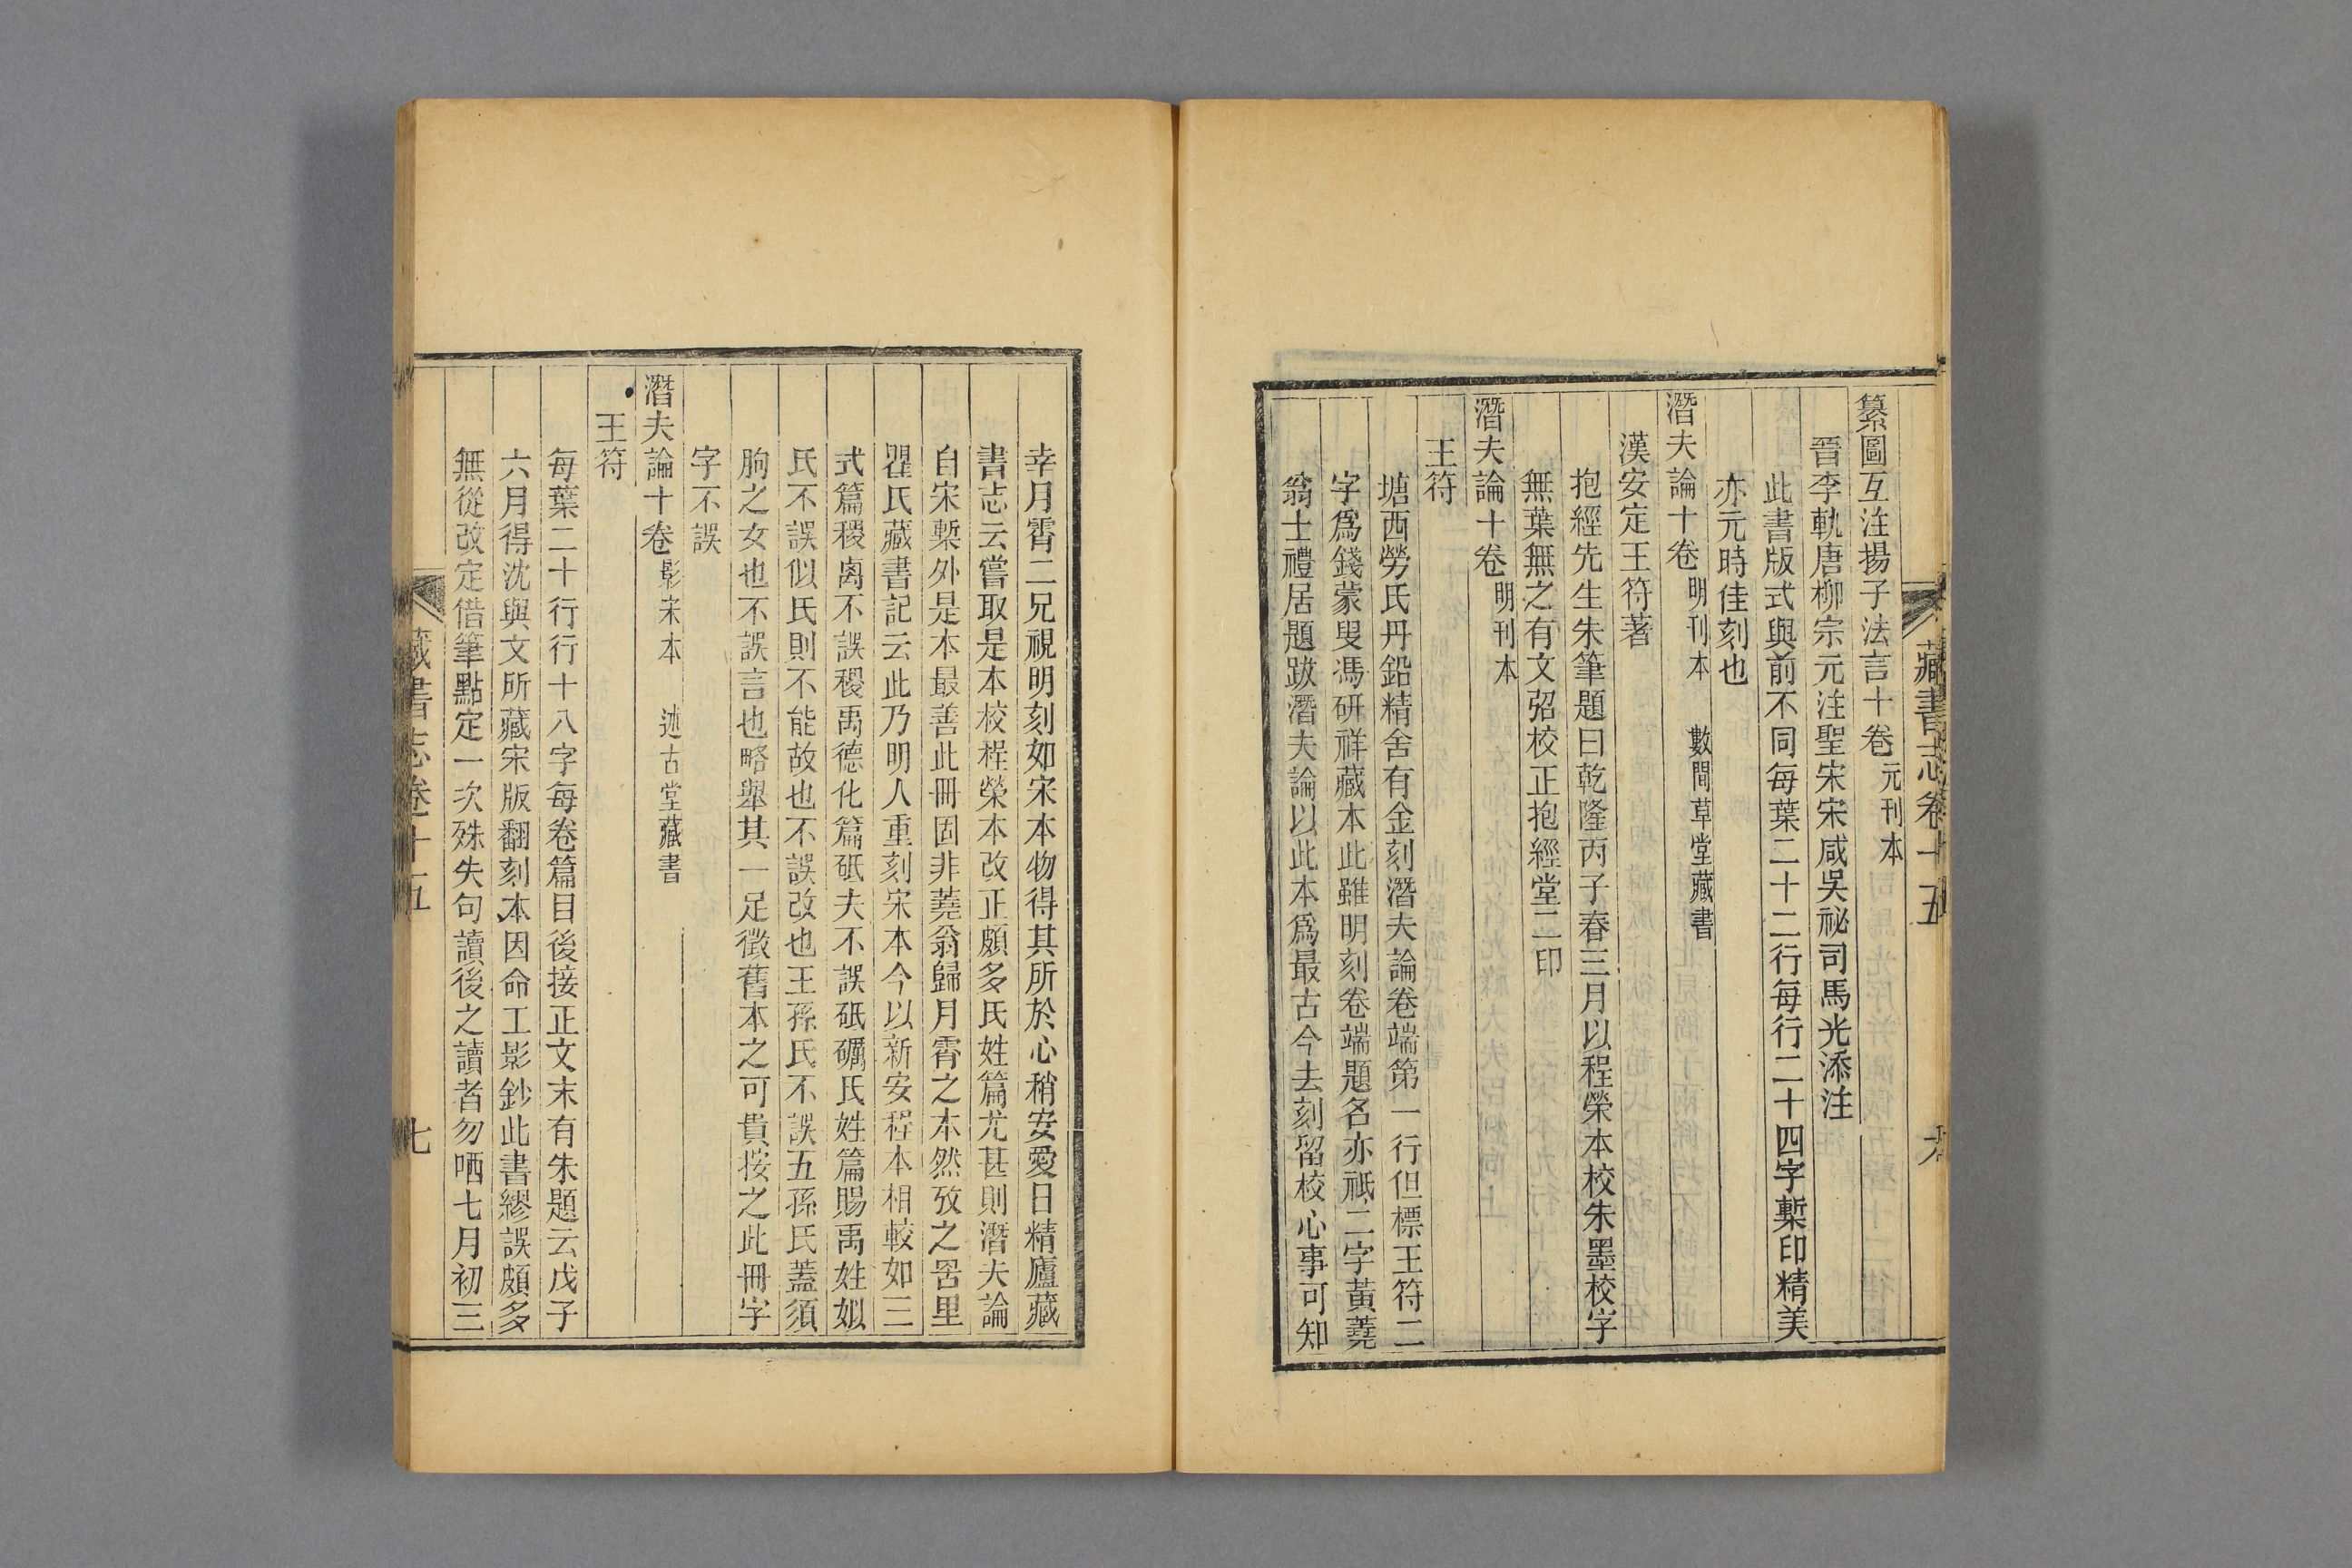 藏書志卷十五
纂圖互注揚子法言十卷 元刊本
晉李軌唐柳宗元注聖宋宋咸吳祕司馬光添注
此書版式與前不同每葉二十二行每行二十四字槧印精美
亦元時佳刻也
潛夫論十卷 明刊本 數閒草堂藏書
漢安定王符著
抱經先生朱筆題曰乾隆丙子春三月以程榮本校朱墨校字
無葉無之有文弨校正抱經堂二印
潛夫論十卷 明刊本
王符
塘西勞氏丹鉛精舍有金刻潛夫論卷端第一行但標王符二
字爲錢蒙叟馮研祥藏本此雖明刻卷端題名亦祇二字黃蕘
翁士禮居題跋潛夫論以此本爲最古今去刻留校心事可知
幸月霄二兄視明刻如宋本物得其所於心稍安愛日精廬藏
書志云嘗取是本校程榮本改正頗多氏姓篇尤甚則潛夫論
自宋槧外是本最善此冊固非蕘翁歸月霄之本然攷之罟里
瞿氏藏書記云此乃明人重刻宋本今以新安程本相較如三
式篇稷禼不誤稷禹德化篇砥夫不誤砥礪氏姓篇賜禹姓姒
氏不誤似氏則不能故也不誤改也王孫氏不誤五孫氏蓋須
朐之女也不誤言也略舉其一足徵舊本之可貴按之此冊字
字不誤
潛夫論十卷 影宋本 述古堂藏書
王符
每葉二十行行十八字每卷篇目後接正文末有朱題云戊子
六月得沈與文所藏宋版翻刻本因命工影鈔此書繆誤頗多
無從改定借筆點定一次殊失句讀後之讀者勿哂七月初三
藏書志卷十五
七